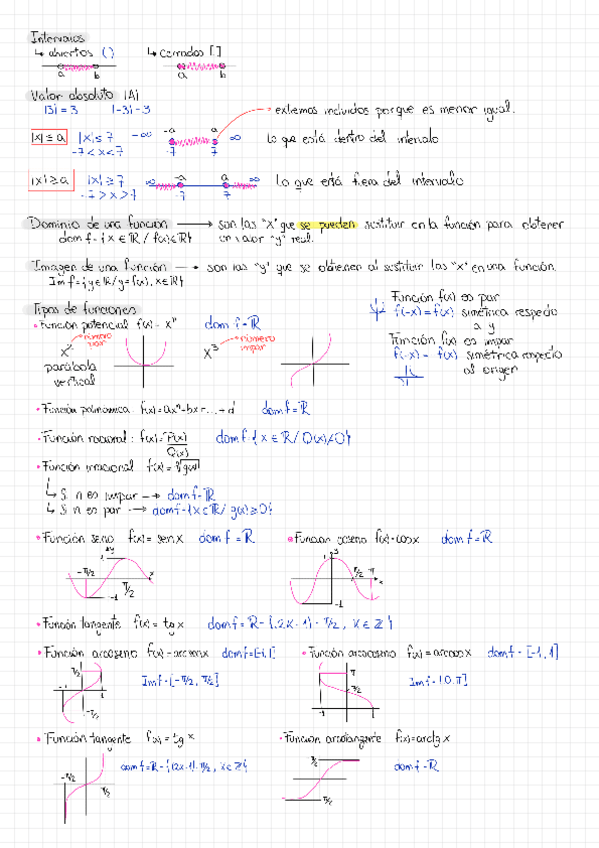 Intervalos
↳ abiertos ( )   ↳ cerrados [ ]
a b   a b
Valor absoluto |A|
|3| = 3   |-3| - 3   → extremos incluidos porque es menor igual.
|x| ≤ a   |x| ≤ 7   -∞   -a   a   ∞   Lo que está dentro del intervalo
-7 < x < 7   -7   7
|x| ≥ a   |x| ≥ 7   ∞   -a   a   ∞   Lo que está fuera del intervalo
-7 > x > 7   -7   7
Dominio de una función → son las "x" que se pueden sustituir en la función para obtener
dom f = { x ∈ ℝ / f(x) ∈ ℝ}   un valor "y" real.
Imagen de una función → son las "y" que se obtienen al sustituir las "x" en una función.
Im f = { y ∈ ℝ / y = f(x), x ∈ ℝ}
Tipos de funciones
Función f(x) es par
• Función potencial f(x) = xⁿ   dom f = ℝ
f(-x) = f(x) simétrica respecto
a y
x² → número par   x³ → número impar
Función f(x) es impar
parábola
f(-x) - f(x) simétrica respecto
vertical
al origen
• Función polinomica f(x) = axⁿ + bx + ... + d   dom f = ℝ
• Función racional : f(x) = P(x)/Q(x)   dom f = { x ∈ ℝ / Q(x) ≠ 0}
• Función irracional f(x) = ⁿ√g(x)
↳ Si n es impar → dom f - ℝ
↳ Si n es par → dom f = {x ∈ ℝ / g(x) ≥ 0}
• Función seno f(x) = sen x   dom f = ℝ   • Función coseno f(x) = cos x   dom f = ℝ
1 y   -π/2   π/2   x   -1   1 y   π/2   π   x   -1
• Función tangente f(x) = tg x   dom f = ℝ - {(2k+1) · π/2, k ∈ ℤ}
• Función arcoseno f(x) = arcsen x   dom f = [-1,1]   • Función arcocoseno f(x) = arccos x   dom f - [-1,1]
π/2   -1   1   -π/2   Im f - [-π/2, π/2]   π   π/2   -1   1   Im f - [0, π]
• Función tangente f(x) = tg x   • Función arcotangente f(x) = arctg x
-π/2   π/2   dom f = ℝ - {(2k+1) · π/2, k ∈ ℤ}   π/2   -π/2   dom f - ℝ